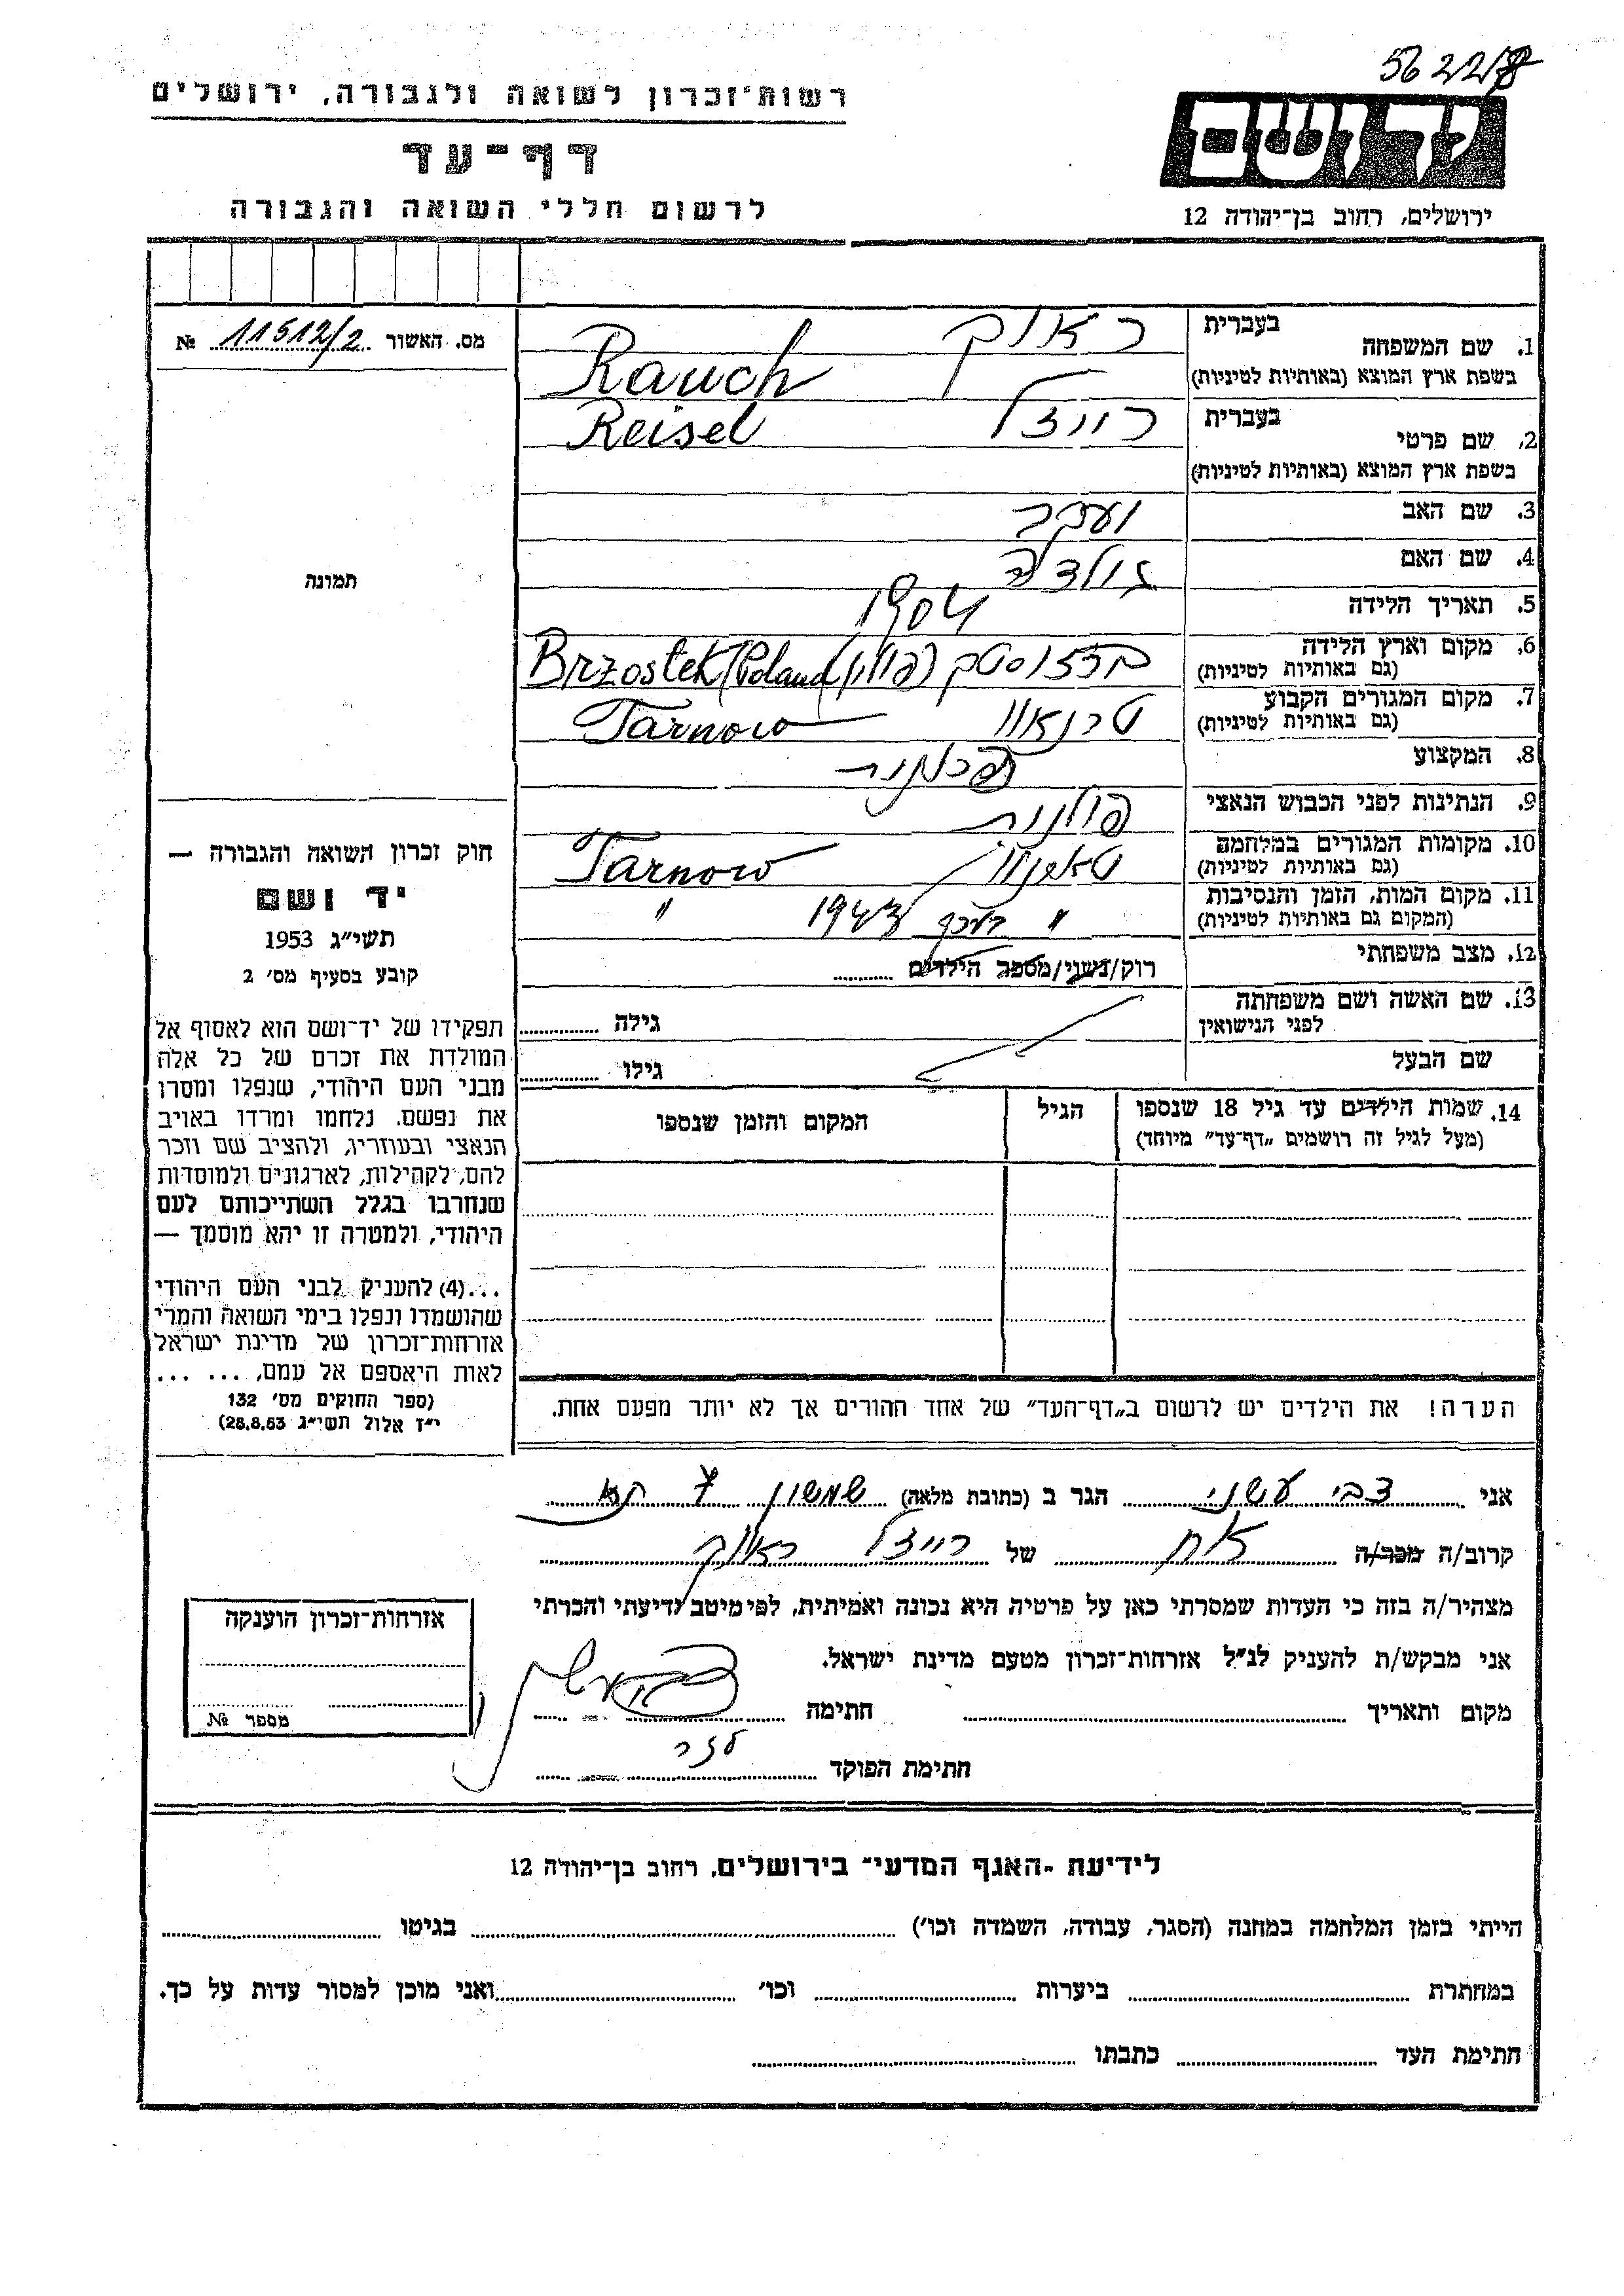 56227
רשות־זכרון לשואה ולגבורה, ירושלים
יד ושם
דף־עד
לרשום חללי השואה והגבורה
ירושלים, רחוב בן־יהודה 12
מס. האשור 11512/2 №
תמונה
חוק זכרון השואה והגבורה —
יד ושם
תשי״ג 1953
קובע בסעיף מס׳ 2
תפקידו של יד־ושם הוא לאסוף אל
המולדת את זכרם של כל אלה
מבני העם היהודי, שנפלו ומסרו
את נפשם, נלחמו ומרדו באויב
הנאצי ובעוזריו, ולהציב שם וזכר
להם, לקהילות, לארגונים ולמוסדות
שנחרבו בגלל השתייכותם לעם
היהודי, ולמטרה זו יהא מוסמך —
...(4) להעניק לבני העם היהודי
שהושמדו ונפלו בימי השואה והמרי
אזרחות־זכרון של מדינת ישראל
לאות היאספם אל עמם, ... ...
(ספר החוקים מס׳ 132
י״ז אלול תשי״ג 28.8.53)
1. שם המשפחה בעברית ראוך
בשפת ארץ המוצא (באותיות לטיניות) Rauch
2. שם פרטי בעברית רייזל
בשפת ארץ המוצא (באותיות לטיניות) Reisel
3. שם האב
4. שם האם גולדה
5. תאריך הלידה 1904
6. מקום וארץ הלידה ברזוסטק (פולין) Brzostek (Poland)
(גם באותיות לטיניות)
7. מקום המגורים הקבוע טרנאוו Tarnow
(גם באותיות לטיניות)
8. המקצוע
9. הנתינות לפני הכבוש הנאצי פולנית
10. מקומות המגורים במלחמה Tarnow
(גם באותיות לטיניות)
11. מקום המות, הזמן והנסיבות ״ בערך 1943 ״
(המקום גם באותיות לטיניות)
12. מצב משפחתי רוק/נשוי/מספר הילדים
13. שם האשה ושם משפחתה גילה
לפני הנישואין
שם הבעל גילו
14. שמות הילדים עד גיל 18 שנספו הגיל המקום והזמן שנספו
(מעל לגיל זה רושמים „דף־עד״ מיוחד)
הערה! את הילדים יש לרשום ב„דף־העד״ של אחד ההורים אך לא יותר מפעם אחת.
אני צבי עשני הגר ב (כתובת מלאה) שמשון 7 תא
קרוב/ה מכר/ה אח של רייזל ראוך
מצהיר/ה בזה כי העדות שמסרתי כאן על פרטיה היא נכונה ואמיתית, לפי מיטב ידיעתי והכרתי
אני מבקש/ת להעניק לנ״ל אזרחות־זכרון מטעם מדינת ישראל.
מקום ותאריך חתימה
חתימת הפוקד
אזרחות־זכרון הוענקה
מספר №
לידיעת ־האגף המדעי־ בירושלים, רחוב בן־יהודה 12
הייתי בזמן המלחמה במחנה (הסגר, עבודה, השמדה וכו׳) בגיטו
במחתרת ביערות וכו׳ ואני מוכן למסור עדות על כך.
חתימת העד כתבתו